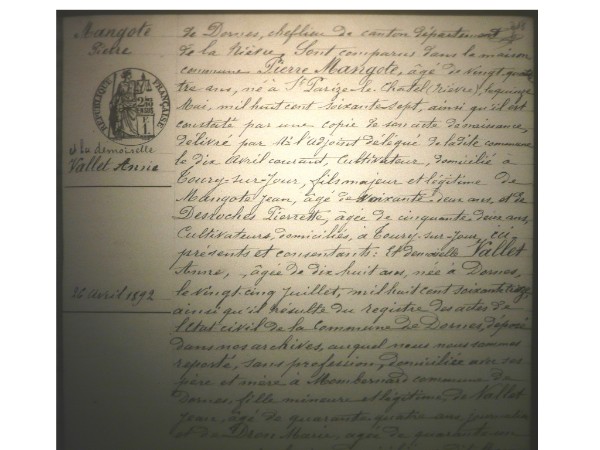 Mangote
Pierre
RÉPUBLIQUE FRANÇAISE
et la demoiselle
Vallet Annie
26 avril 1892
de Dornes, chef lieu de canton département
de la Nièvre, Sont comparus dans la maison
commune Pierre Mangote, âgé de vingt quatre
tre ans, né à St Parize-le-Châtel (Nièvre), le quinze
Mai, mil huit cent soixante sept, ainsi qu'il est
constaté par une copie de son acte de naissance,
délivré par Mr l'adjoint délégué de ladite commune
le dix Avril courant, Cultivateur, domicilié à
Toury-sur-Jour, fils majeur et légitime de
Mangote Jean, âgé de soixante deux ans, et de
Desroches Pierrette, âgée de cinquante deux ans,
Cultivateurs, domiciliés, à Toury-sur-Jour, ici
présents et consentants: Et demoiselle Vallet
Anne, âgée de dix huit ans, née à Dornes,
le vingt cinq Juillet, mil huit cent soixante treize
ainsi qu'il résulte du registre des actes de
l'Etat civil de la Commune de Dornes, déposé
dans nos archives, auquel nous nous sommes
reporté, sans profession, domiciliée avec ses
père et mère à Montbernard commune de
Dornes, fille mineure et légitime de Vallet
Jean, âgé de quarante quatre ans, journalier
et de Dron Marie, âgée de quarante un